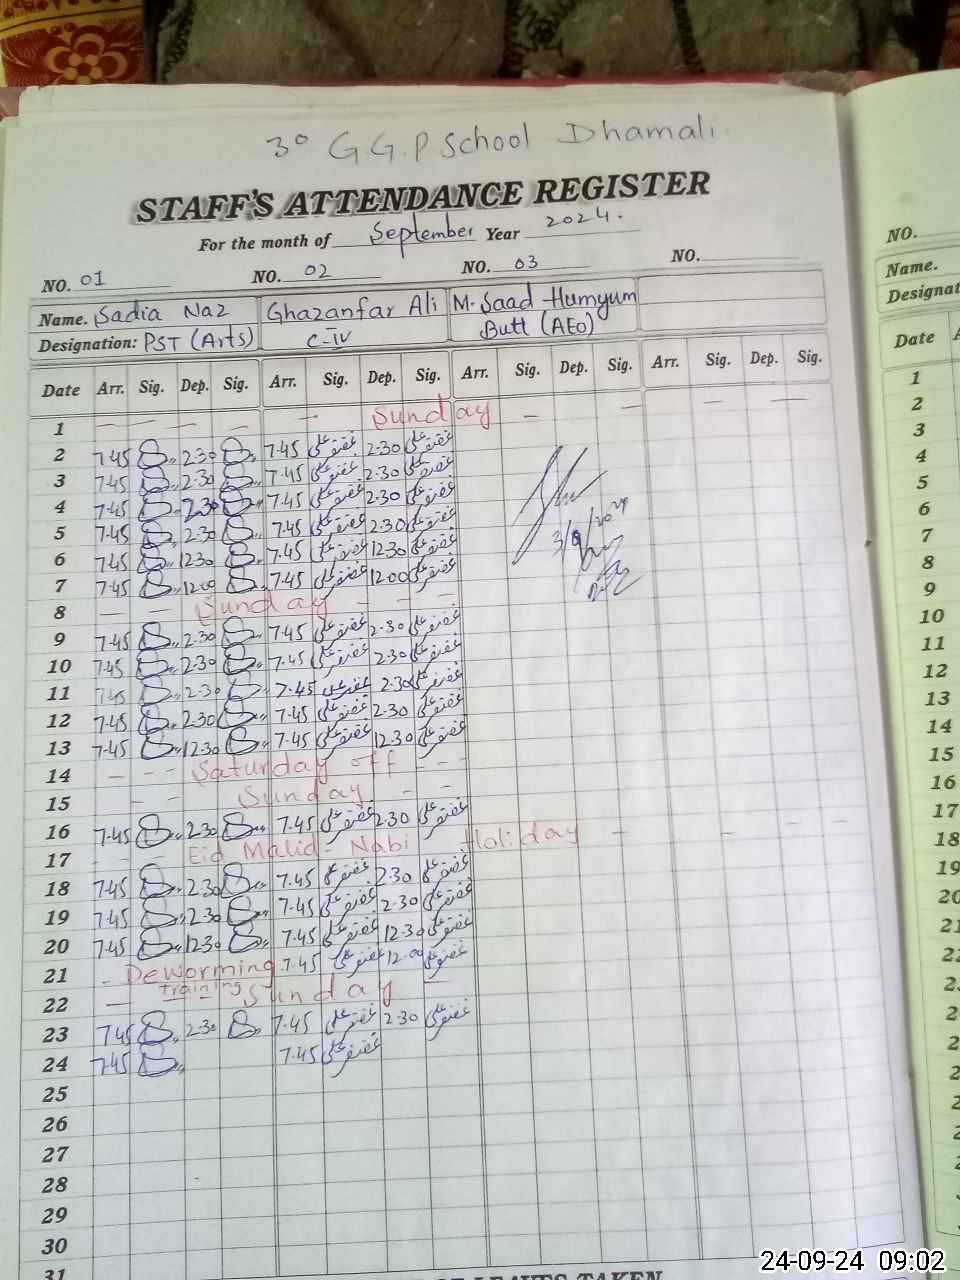 3° G.G.P School Dhamali.
STAFF'S ATTENDANCE REGISTER
For the month of September Year 2024.
NO. 01 NO. 02 NO. 03 NO.
Name. Sadia Naz Ghazanfar Ali M. Saad Humyum
Designation: PST (Arts) C-IV Butt (AEO)
Date Arr. Sig. Dep. Sig. Arr. Sig. Dep. Sig. Arr. Sig. Dep. Sig. Arr. Sig. Dep. Sig.
1 Sunday
2 7.45 2.30 7.45 غضنفر علی 2.30 غضنفر علی
3 7.45 2.30 7.45 غضنفر علی 2.30 غضنفر علی
4 7.45 2.30 7.45 غضنفر علی 2.30 غضنفر علی
5 7.45 2.30 7.45 غضنفر علی 2.30 غضنفر علی
6 7.45 12.30 7.45 غضنفر علی 12.30 غضنفر علی
7 7.45 12.00 7.45 غضنفر علی 12.00 غضنفر علی
8 Sunday
9 7.45 2.30 7.45 غضنفر علی 2.30 غضنفر علی
10 7.45 2.30 7.45 غضنفر علی 2.30 غضنفر علی
11 7.45 2.30 7.45 غضنفر علی 2.30 غضنفر علی
12 7.45 2.30 7.45 غضنفر علی 2.30 غضنفر علی
13 7.45 12.30 7.45 غضنفر علی 12.30 غضنفر علی
14 Saturday off
15 Sunday
16 7.45 2.30 7.45 غضنفر علی 2.30 غضنفر علی
17 Eid Malid Nabi Holiday
18 7.45 2.30 7.45 غضنفر علی 2.30 غضنفر علی
19 7.45 2.30 7.45 غضنفر علی 2.30 غضنفر علی
20 7.45 12.30 7.45 غضنفر علی 12.30 غضنفر علی
21 Deworming 7.45 غضنفر علی 12.00 غضنفر علی
training
22 Sunday
23 7.45 2.30 7.45 غضنفر علی 2.30 غضنفر علی
24 7.45 7.45 غضنفر علی
25
26
27
28
29
30
31
3/9/2024
NO.
Name.
Designat
Date
1
2
3
4
5
6
7
8
9
10
11
12
13
14
15
16
17
18
19
24-09-24 09:02